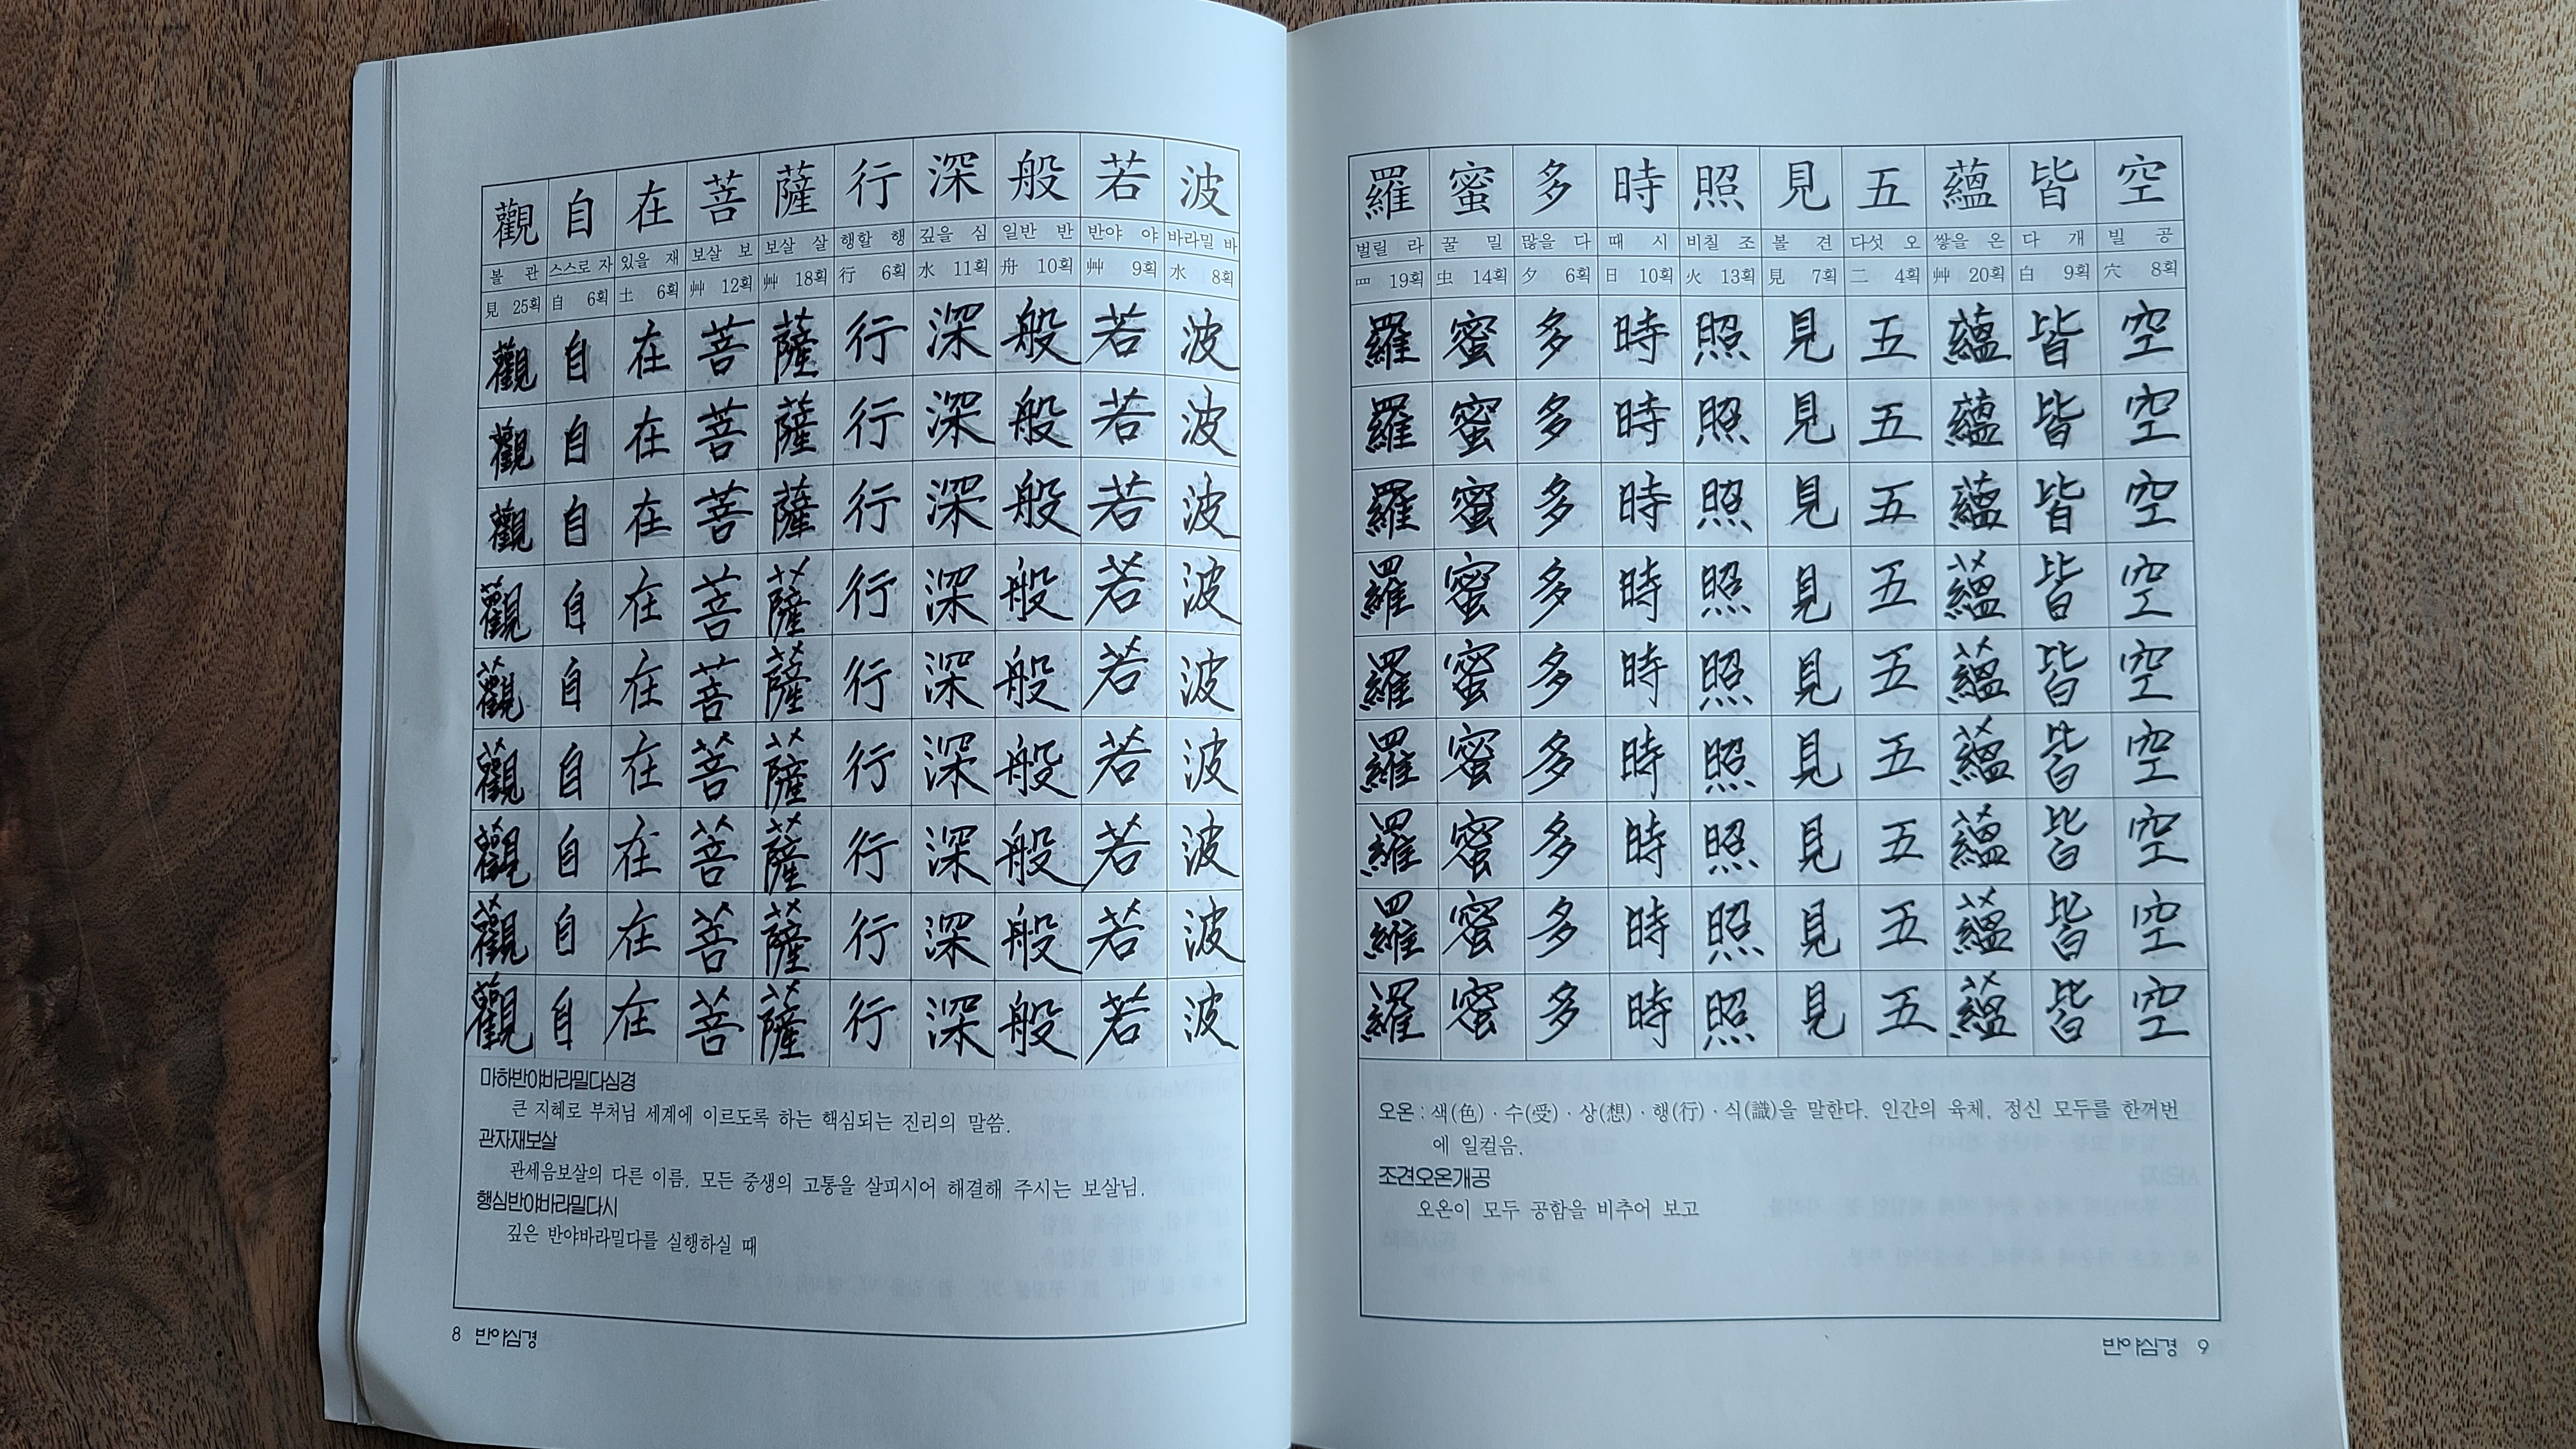 觀 自 在 菩 薩 行 深 般 若 波
볼 관 스스로 자 있을 재 보살 보 보살 살 행할 행 깊을 심 일반 반 반야 야 바라밀 바
見 25획 自 6획 土 6획 艸 12획 艸 18획 行 6획 水 11획 舟 10획 艸 9획 水 8획
觀 自 在 菩 薩 行 深 般 若 波
觀 自 在 菩 薩 行 深 般 若 波
觀 自 在 菩 薩 行 深 般 若 波
觀 自 在 菩 薩 行 深 般 若 波
觀 自 在 菩 薩 行 深 般 若 波
觀 自 在 菩 薩 行 深 般 若 波
觀 自 在 菩 薩 行 深 般 若 波
觀 自 在 菩 薩 行 深 般 若 波
觀 自 在 菩 薩 行 深 般 若 波
마하반야바라밀다심경
큰 지혜로 부처님 세계에 이르도록 하는 핵심되는 진리의 말씀.
관자재보살
관세음보살의 다른 이름. 모든 중생의 고통을 살피시어 해결해 주시는 보살님.
행심반야바라밀다시
깊은 반야바라밀다를 실행하실 때
8 반야심경
羅 蜜 多 時 照 見 五 蘊 皆 空
벌릴 라 꿀 밀 많을 다 때 시 비칠 조 볼 견 다섯 오 쌓을 온 다 개 빌 공
罒 19획 虫 14획 夕 6획 日 10획 火 13획 見 7획 二 4획 艸 20획 白 9획 穴 8획
羅 蜜 多 時 照 見 五 蘊 皆 空
羅 蜜 多 時 照 見 五 蘊 皆 空
羅 蜜 多 時 照 見 五 蘊 皆 空
羅 蜜 多 時 照 見 五 蘊 皆 空
羅 蜜 多 時 照 見 五 蘊 皆 空
羅 蜜 多 時 照 見 五 蘊 皆 空
羅 蜜 多 時 照 見 五 蘊 皆 空
羅 蜜 多 時 照 見 五 蘊 皆 空
羅 蜜 多 時 照 見 五 蘊 皆 空
오온 : 색(色) · 수(受) · 상(想) · 행(行) · 식(識)을 말한다. 인간의 육체, 정신 모두를 한꺼번
에 일컬음.
조견오온개공
오온이 모두 공함을 비추어 보고
반야심경 9